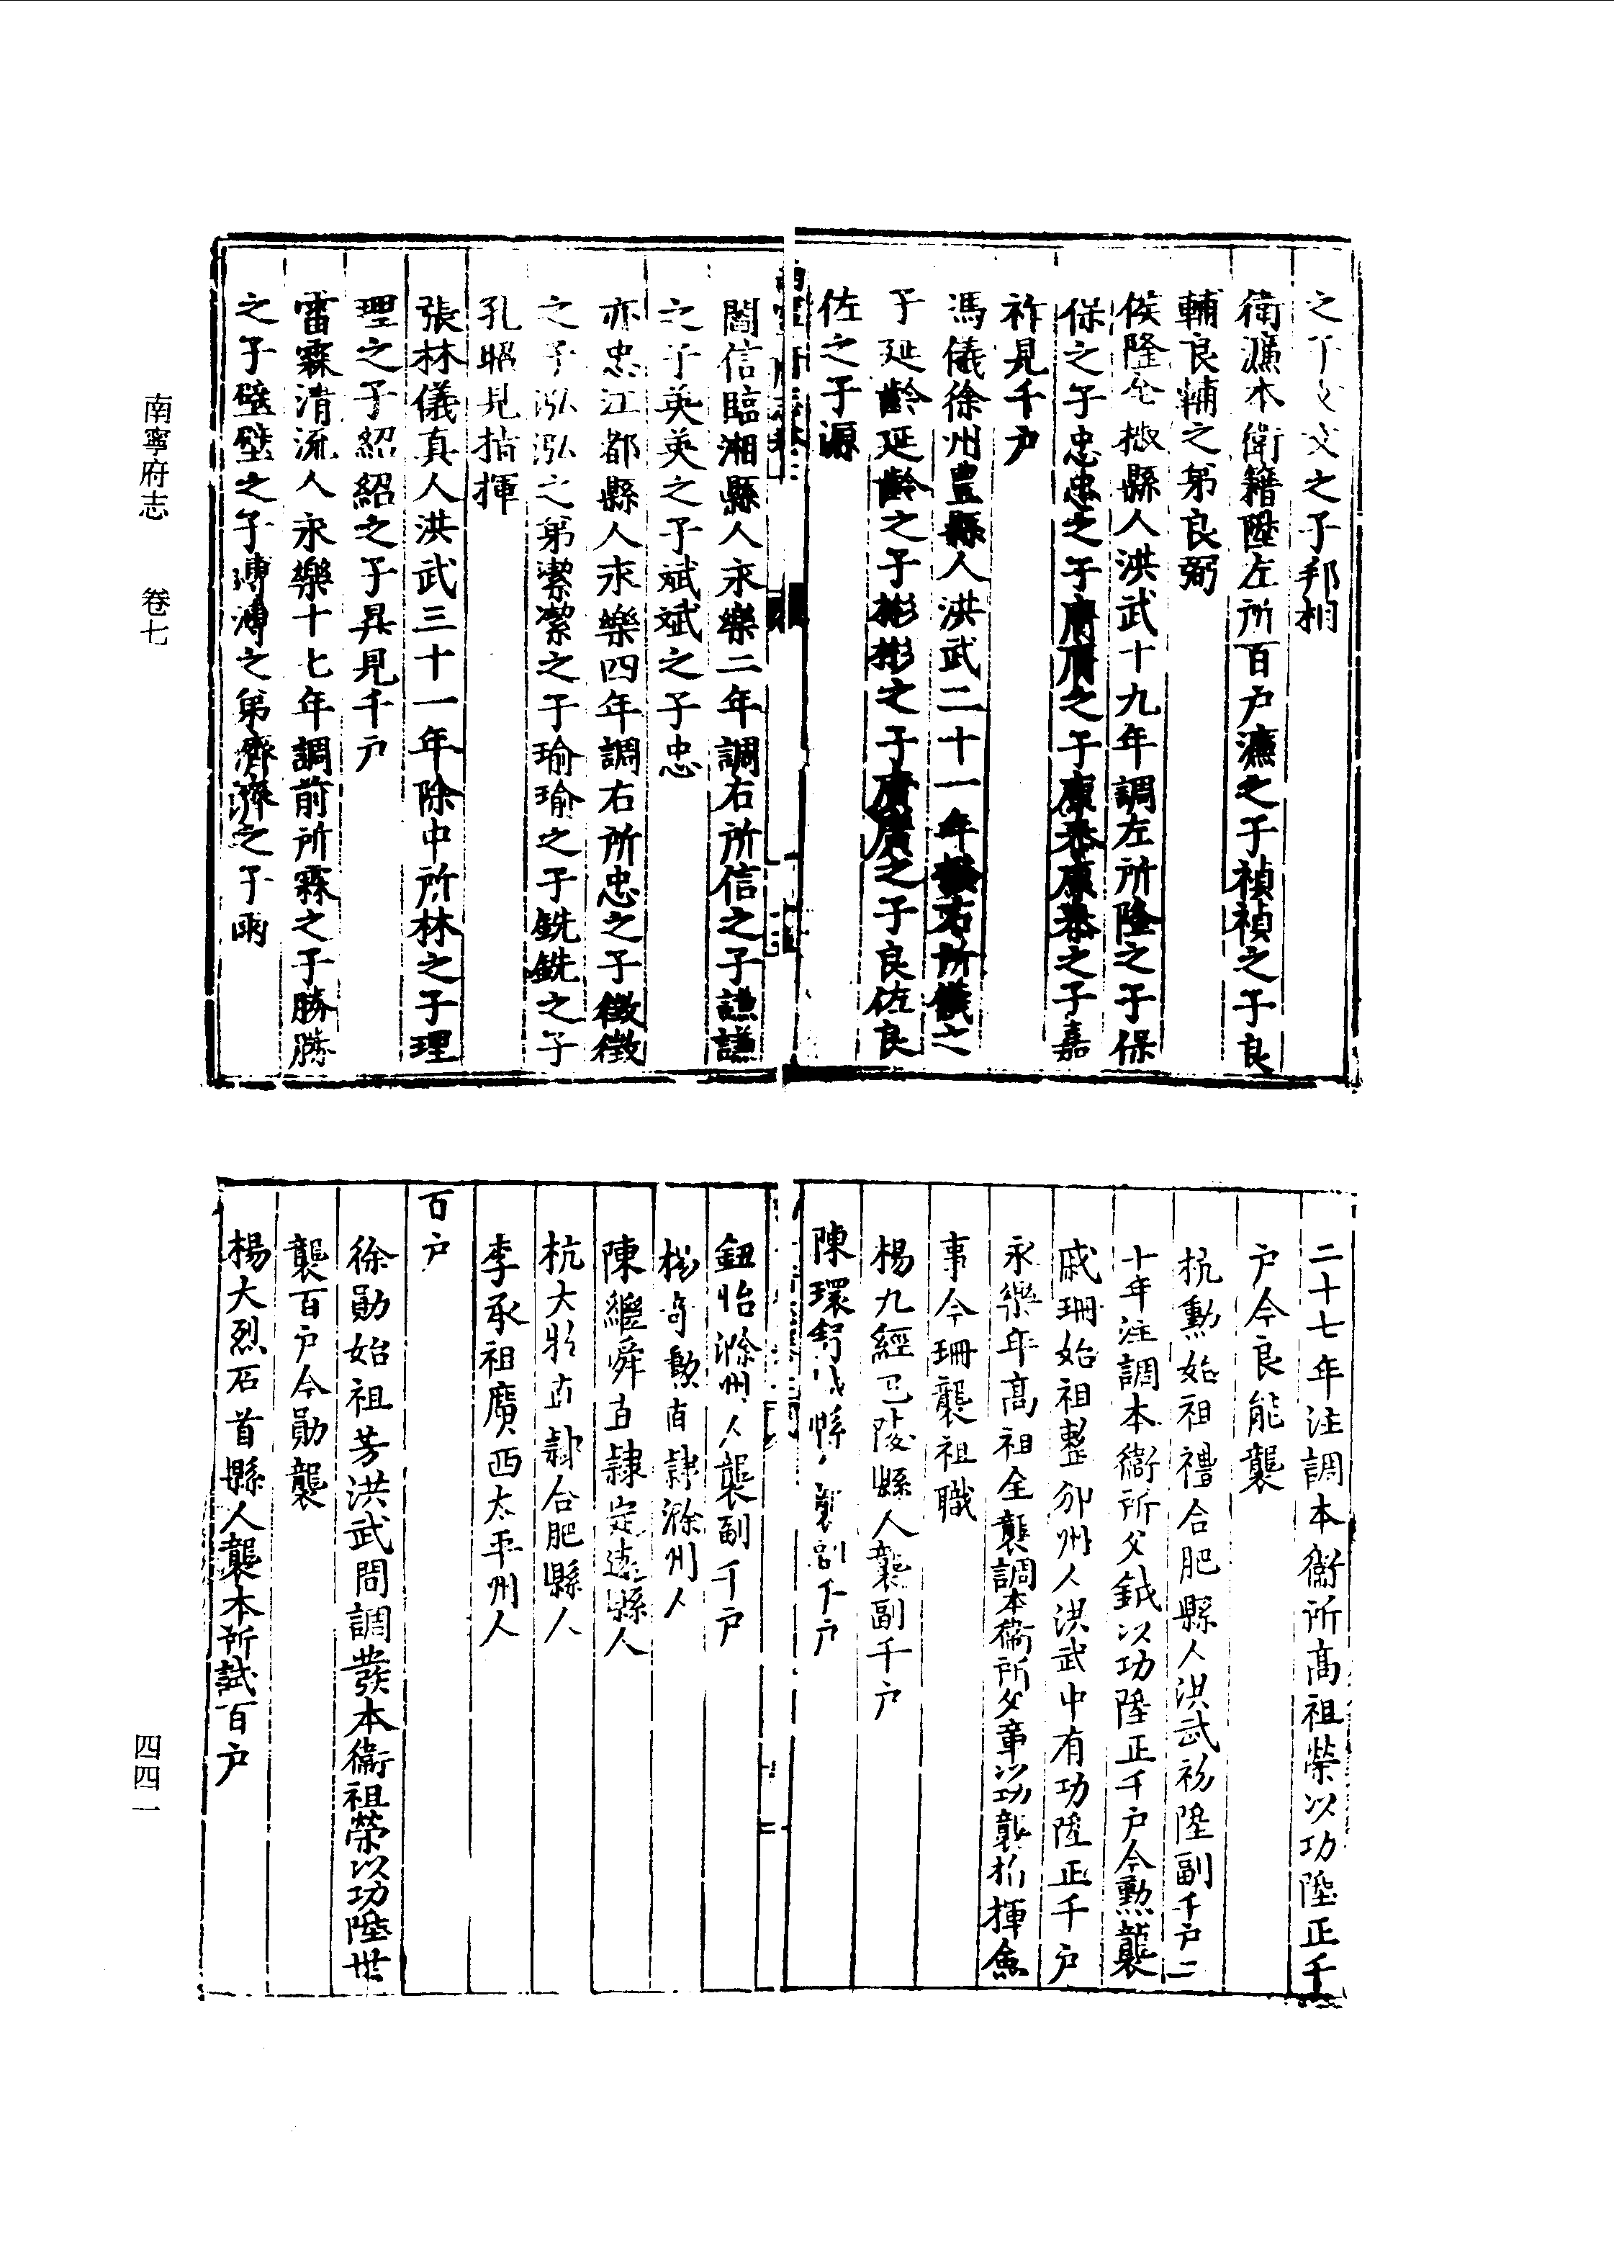 之子文文之子邦相
衛濂本衛籍陞左所百户濂之子禎禎之子良
輔良輔之弟良弼
侯隆全椒縣人洪武十九年調左所隆之子保
保之子忠忠之子之子康泰康泰之子嘉
祚見千户
馮儀徐州豊縣人洪武二十一年右所儀之
子延齡延齡之子彬彬之子廣廣之子良佐良
佐之子源
閻信臨湘縣人永樂二年調右所信之子謙謙
之子英英之子斌斌之子忠
亦忠江都縣人永樂四年調右所忠之子徵徵
之子泓泓之弟潔潔之子瑜瑜之子銑銑之子
孔昭見指揮
張林儀真人洪武三十一年除中所林之子理
理之子紹紹之子昇見千户
雷霖清流人永樂十七年調前所霖之子勝勝
之子璧璧之子溥溥之弟濟濟之子雨
二十七年注調本衛所高祖榮以功陞正千
户今良能襲
杭勳始祖禮合肥縣人洪武初陞副千户二
十年注調本衛所父鉞以功陞正千户今勲襲
戚珊始祖整邠州人洪武中有功陞正千户
永樂年高祖全襲調本衛所父章以功襲指揮僉
事今珊襲祖職
楊九經巴陵縣人襲副千户
陳環縣人襲副千户
鈕怡滁州人襲副千户
直隷滁州人
陳繼舜直隷定遠縣人
杭大直隷合肥縣人
李承祖廣西太平州人
百户
徐勛始祖芳洪武間調發本衛祖榮以功陞世
襲百户今勛襲
楊大烈石首縣人襲本所試百户
南寧府志 卷七
四四一